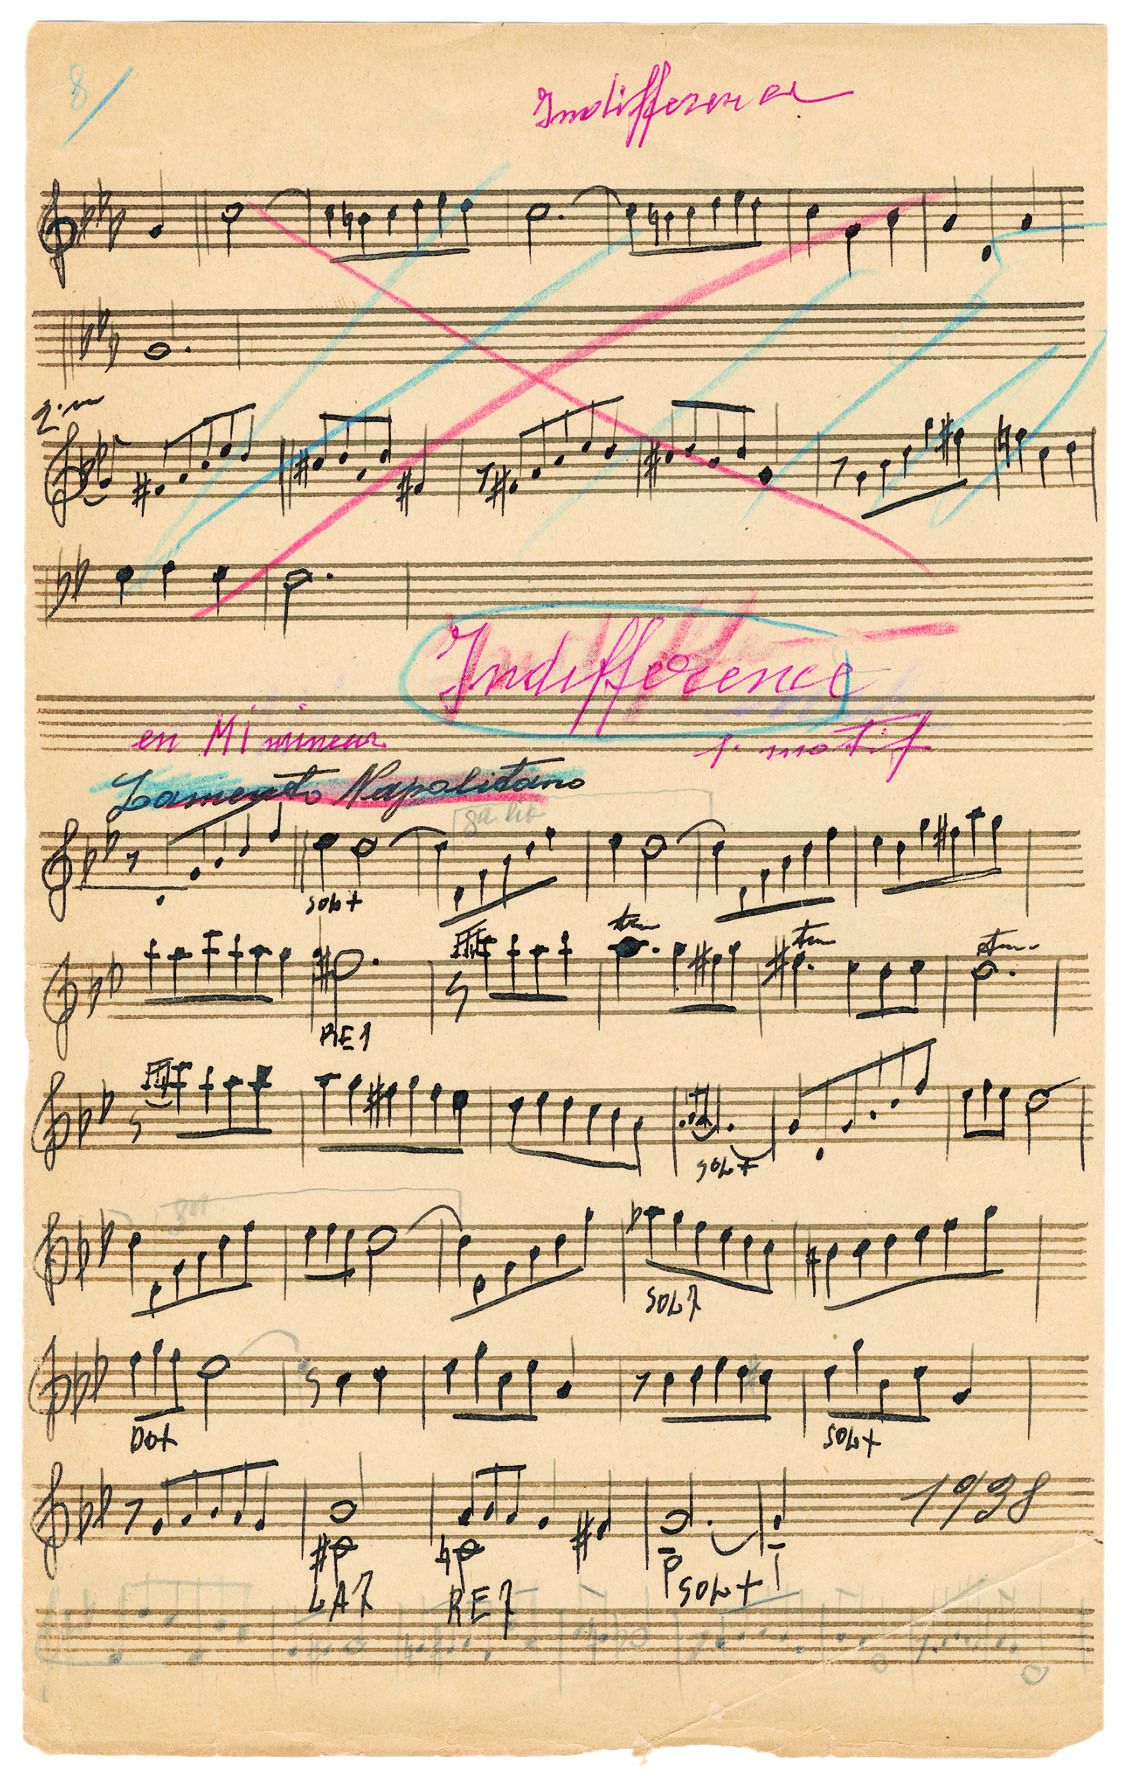 8/
Indifference
2.m
Indifference
en Mi mineur
1. motif
Lamento Napolitano
SOL+
RE7
tr
tr
tr
SOL+
SOL7
DO+
SOL+
1938
LA7 RE7 SOL+